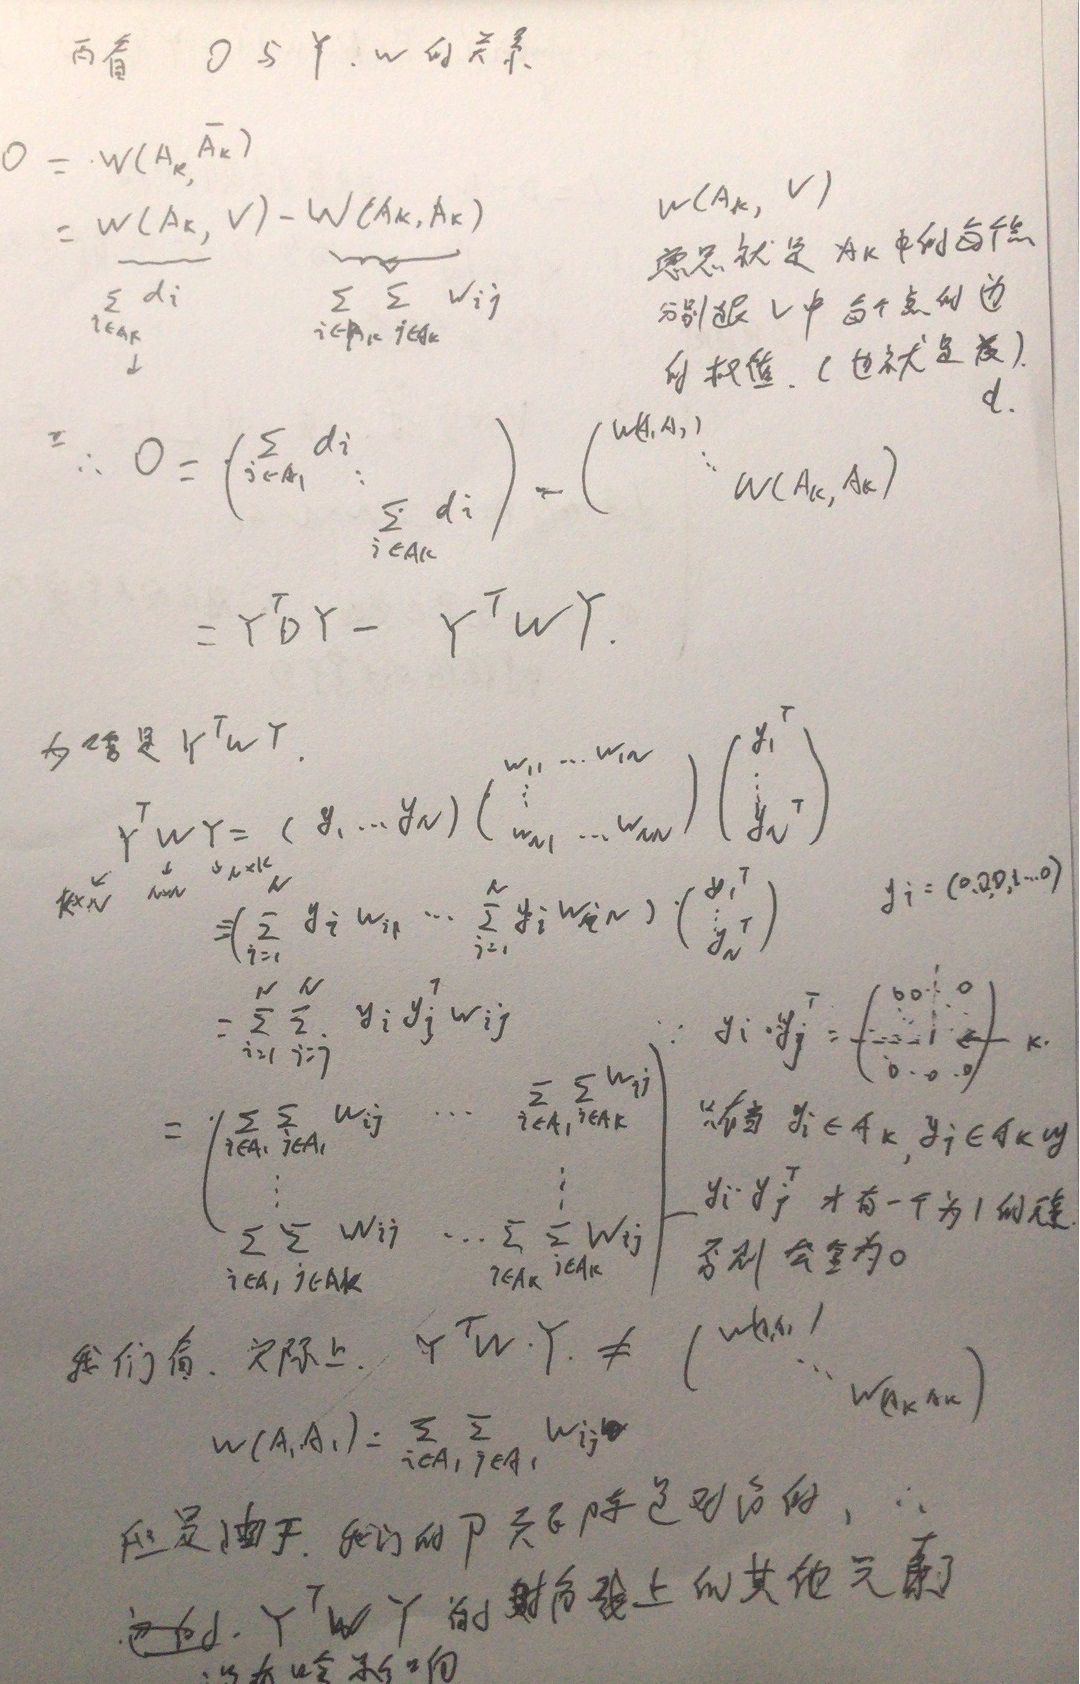 再看 O 与 Y、W 的关系.
O = W(A_K, Ā_K)
= W(A_K, V) - W(A_K, A_K)
∑_{i∈A_K} d_i    ∑_{i∈A_K} ∑_{j∈A_K} W_ij
↓
W(A_K, V)
意思就是 A_K 中的每个点
分别跟 V 中每个点的边
的权值. (也就是度).
d.
∴ O = ( ∑_{i∈A_1} d_i ⋱ ∑_{i∈A_K} d_i ) - ( W(A_1,A_1) ⋱ W(A_K, A_K) )
= Y^T D Y - Y^T W Y.
为啥是 Y^T W Y.
Y^T W Y = ( y_1 ... y_N ) ( w_11 ... w_1N ⋮ w_N1 ... w_NN ) ( y_1^T ⋮ y_N^T )
K×N   N×N   N×K
= ( ∑_{i=1}^N y_i w_i1 ... ∑_{i=1}^N y_i w_iN ) · ( y_1^T ⋮ y_N^T )
y_i = (0,0,0,1...0)
= ∑_{i=1}^N ∑_{j=j}^N y_i y_j^T w_ij
∵ y_i · y_j^T = ( 0 0 0 1 0 . 0 . 0 ) ← K.
= ( ∑_{i∈A_1} ∑_{j∈A_1} W_ij ... ∑_{i∈A_1} ∑_{j∈A_K} W_ij
⋮ ⋮
∑_{i∈A_1} ∑_{j∈A_K} W_ij ... ∑_{i∈A_K} ∑_{j∈A_K} W_ij )
只有当 y_i ∈ A_K, y_j ∈ A_K 时
y_i · y_j^T 才有一个为1的元素.
否则会全为0
我们看. 实际上. Y^T W · Y. ≠ ( W(A_1,A_1) ⋱ W(A_K A_K) )
W(A_1 A_1) = ∑_{i∈A_1} ∑_{j∈A_1} W_ij
但是由于. 我们的 P 矩阵是对角的, ∴
Y^T W Y 的对角线上的其他元素
没有啥影响